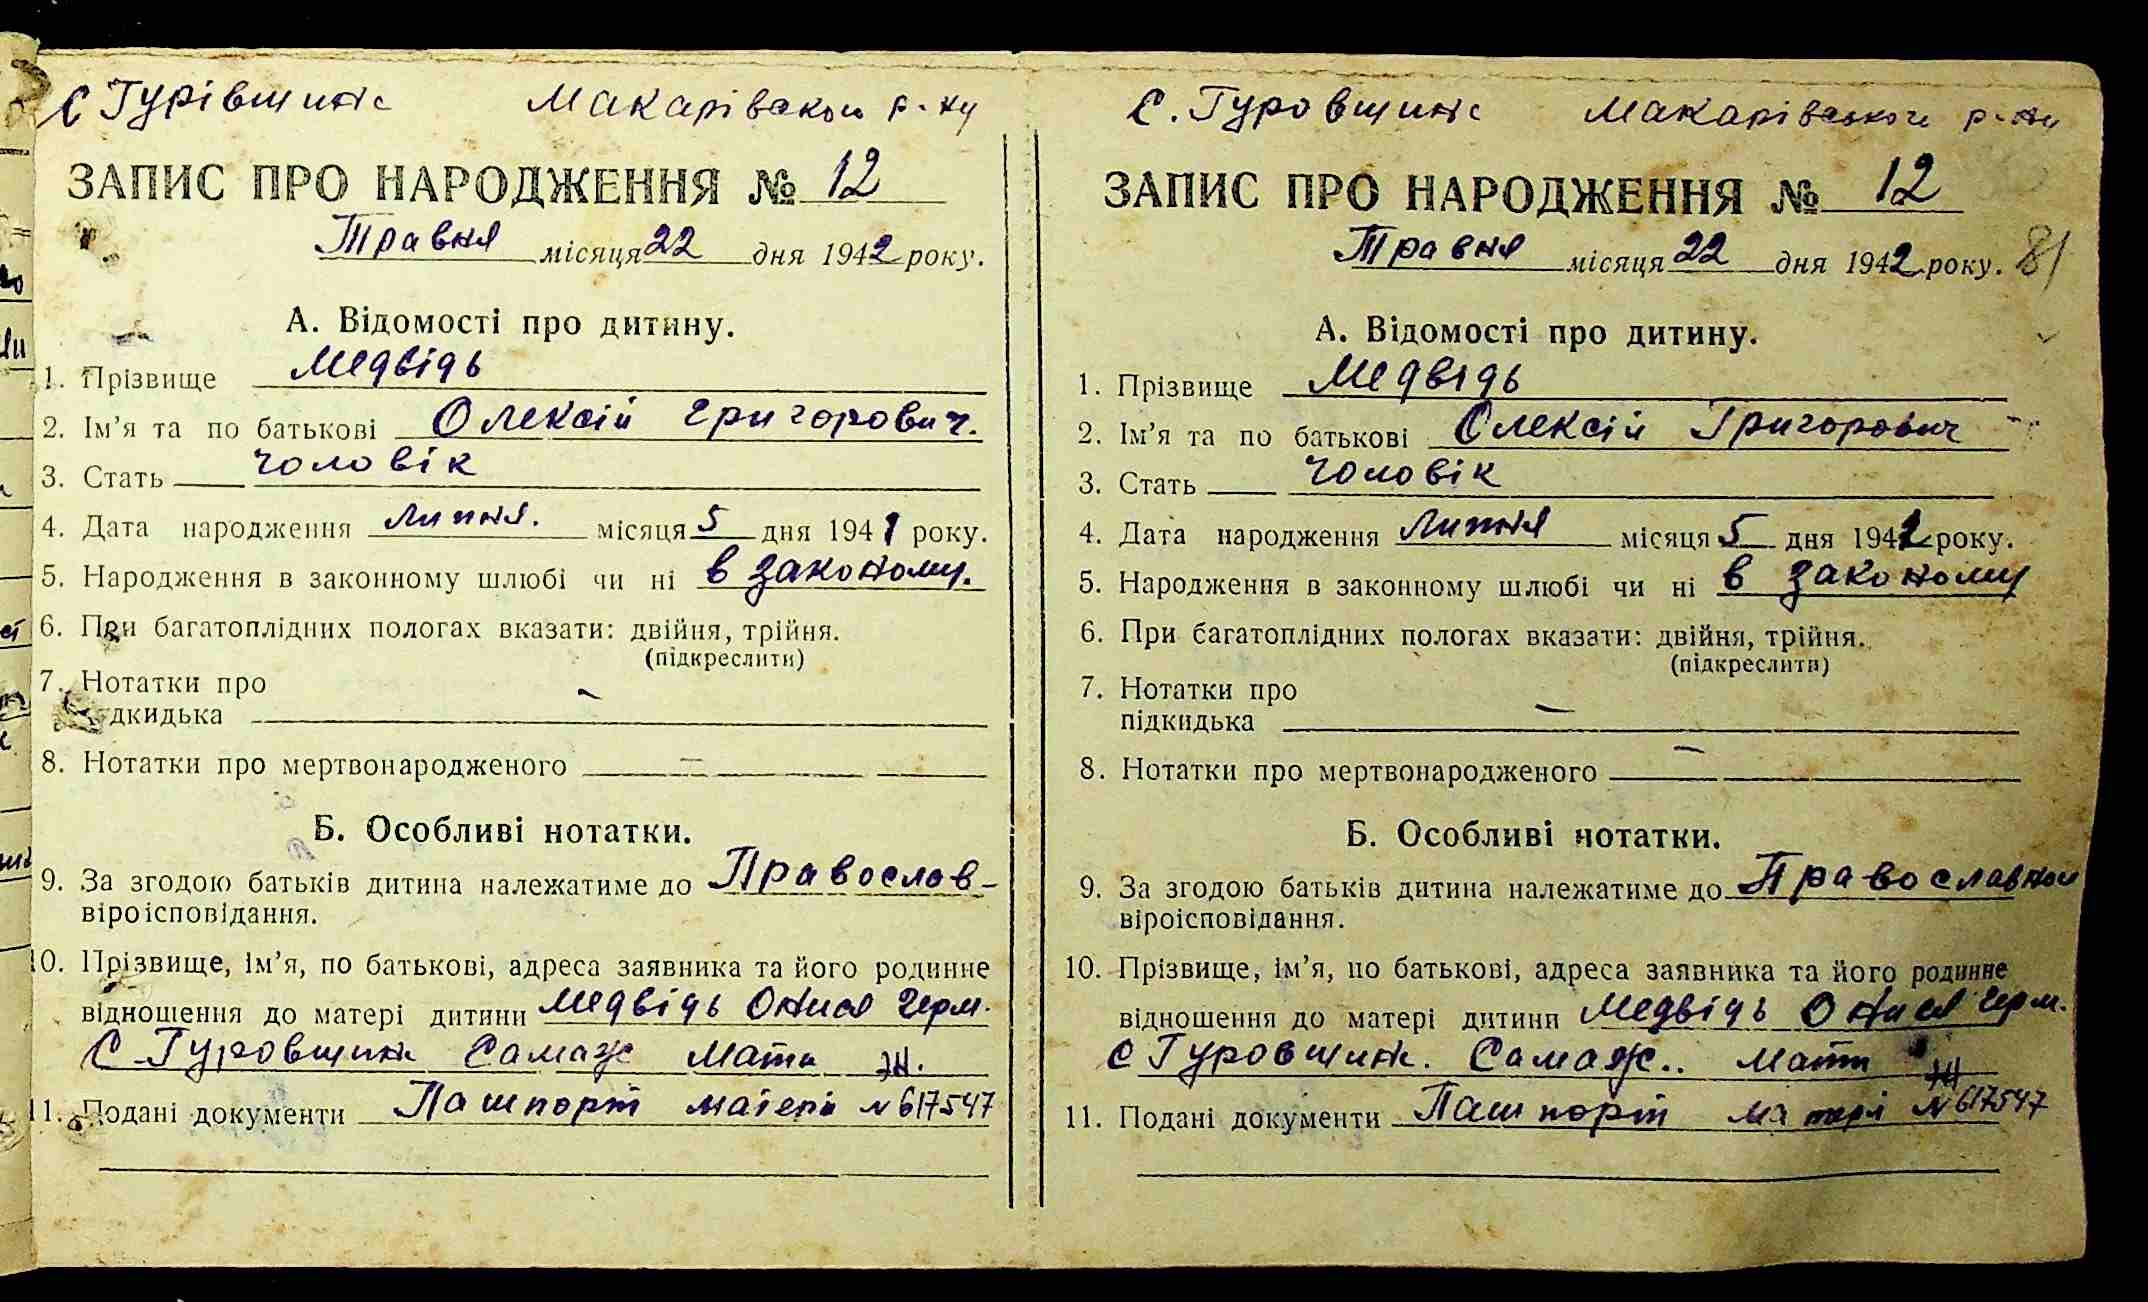 с Гурівщина Макарівском р-ну
ЗАПИС ПРО НАРОДЖЕННЯ № 12
Травня місяця 22 дня 1942 року.
А. Відомості про дитину.
1. Прізвище Медвідь
2. Ім’я та по батькові Олексій Григорович.
3. Стать чоловік
4. Дата народження Липня. місяця 5 дня 1941 року.
5. Народження в законному шлюбі чи ні в законому.
6. При багатоплідних пологах вказати: двійня, трійня.
(підкреслити)
7. Нотатки про
дкидька
8. Нотатки про мертвонародженого
Б. Особливі нотатки.
9. За згодою батьків дитина належатиме до Православ-
віроісповідання.
10. Прізвище, ім’я, по батькові, адреса заявника та його родинне
відношення до матері дитини Медвідь Онися Герм.
С. Гуровщина Мати
11. Подані документи Пашпорт матері № 617547
С. Гуровщина Макарівського р-ну
ЗАПИС ПРО НАРОДЖЕННЯ № 12
Травня місяця 22 дня 1942 року. 81
А. Відомості про дитину.
1. Прізвище Медвідь
2. Ім’я та по батькові Олексій Григорович
3. Стать чоловік
4. Дата народження Липня місяця 5 дня 1941 року.
5. Народження в законному шлюбі чи ні в законому
6. При багатоплідних пологах вказати: двійня, трійня.
(підкреслити)
7. Нотатки про
підкидька
8. Нотатки про мертвонародженого
Б. Особливі нотатки.
9. За згодою батьків дитина належатиме до Православной
віроісповідання.
10. Прізвище, ім’я, по батькові, адреса заявника та його родинне
відношення до матері дитини Медвідь Онися Герм.
С Гуровщина. Мати
11. Подані документи Пашпорт матері № 617547